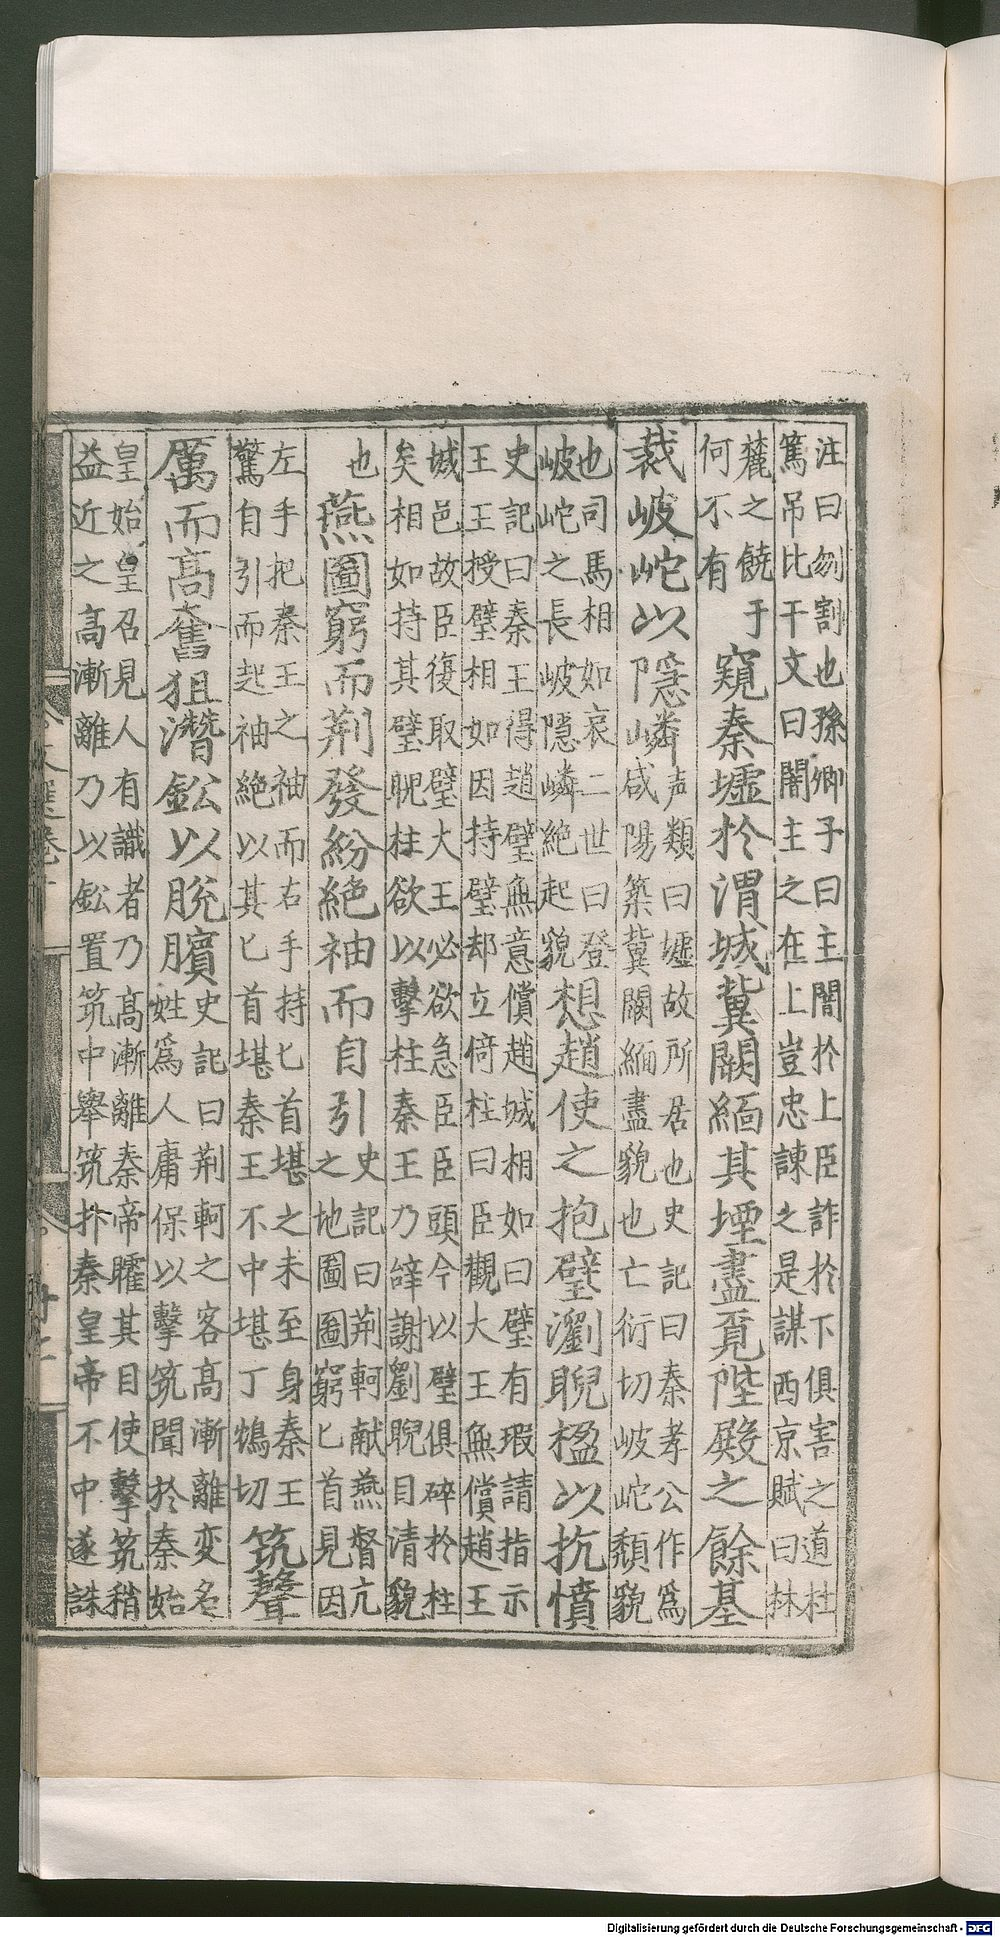 注曰刎割也孫卿子曰主闇於上臣詐於下俱害之道杜
篤吊比干文曰闇主之在上豈忠諫之是謀西京賦曰林
麓之饒于
何不有
窺秦墟於渭城冀闕緬其堙盡覓陛殿之餘基
裁岥岮以隱嶙
声類曰墟故所居也史記曰秦孝公作爲
咸陽築冀闕緬盡貌也亡衍切岥岮頹貌
也司馬相如哀二世曰登
岥岮之長岥隱嶙絶起貌
想趙使之抱璧瀏睨楹以抗憤
史記曰秦王得趙璧無意償趙城相如曰璧有瑕請指示
王王授璧相如因持璧却立倚柱曰臣觀大王無償趙王
城邑故臣復取璧大王必欲急臣臣頭今以璧俱碎扵柱
矣相如持其璧睨柱欲以擊柱秦王乃辝謝劉睨目清貌
也
燕圖窮而荆發紛絶袖而自引
史記曰荆軻献燕督亢
之地圖圖窮匕首見因
左手把秦王之袖而右手持匕首堪之未至身秦王
驚自引而起袖絶以其匕首堪秦王不中堪丁鴆切
筑聲
厲而高奮狙潛鈆以脫臏
史記曰荆軻之客高漸離变名
姓爲人庸保以擊筑聞於秦始
皇始皇召見人有識者乃高漸離秦帝矐其目使擊筑稍
益近之高漸離乃以鈆置筑中舉筑扑秦皇帝不中遂誅
Digitalisierung gefördert durch die Deutsche Forschungsgemeinschaft - DFG